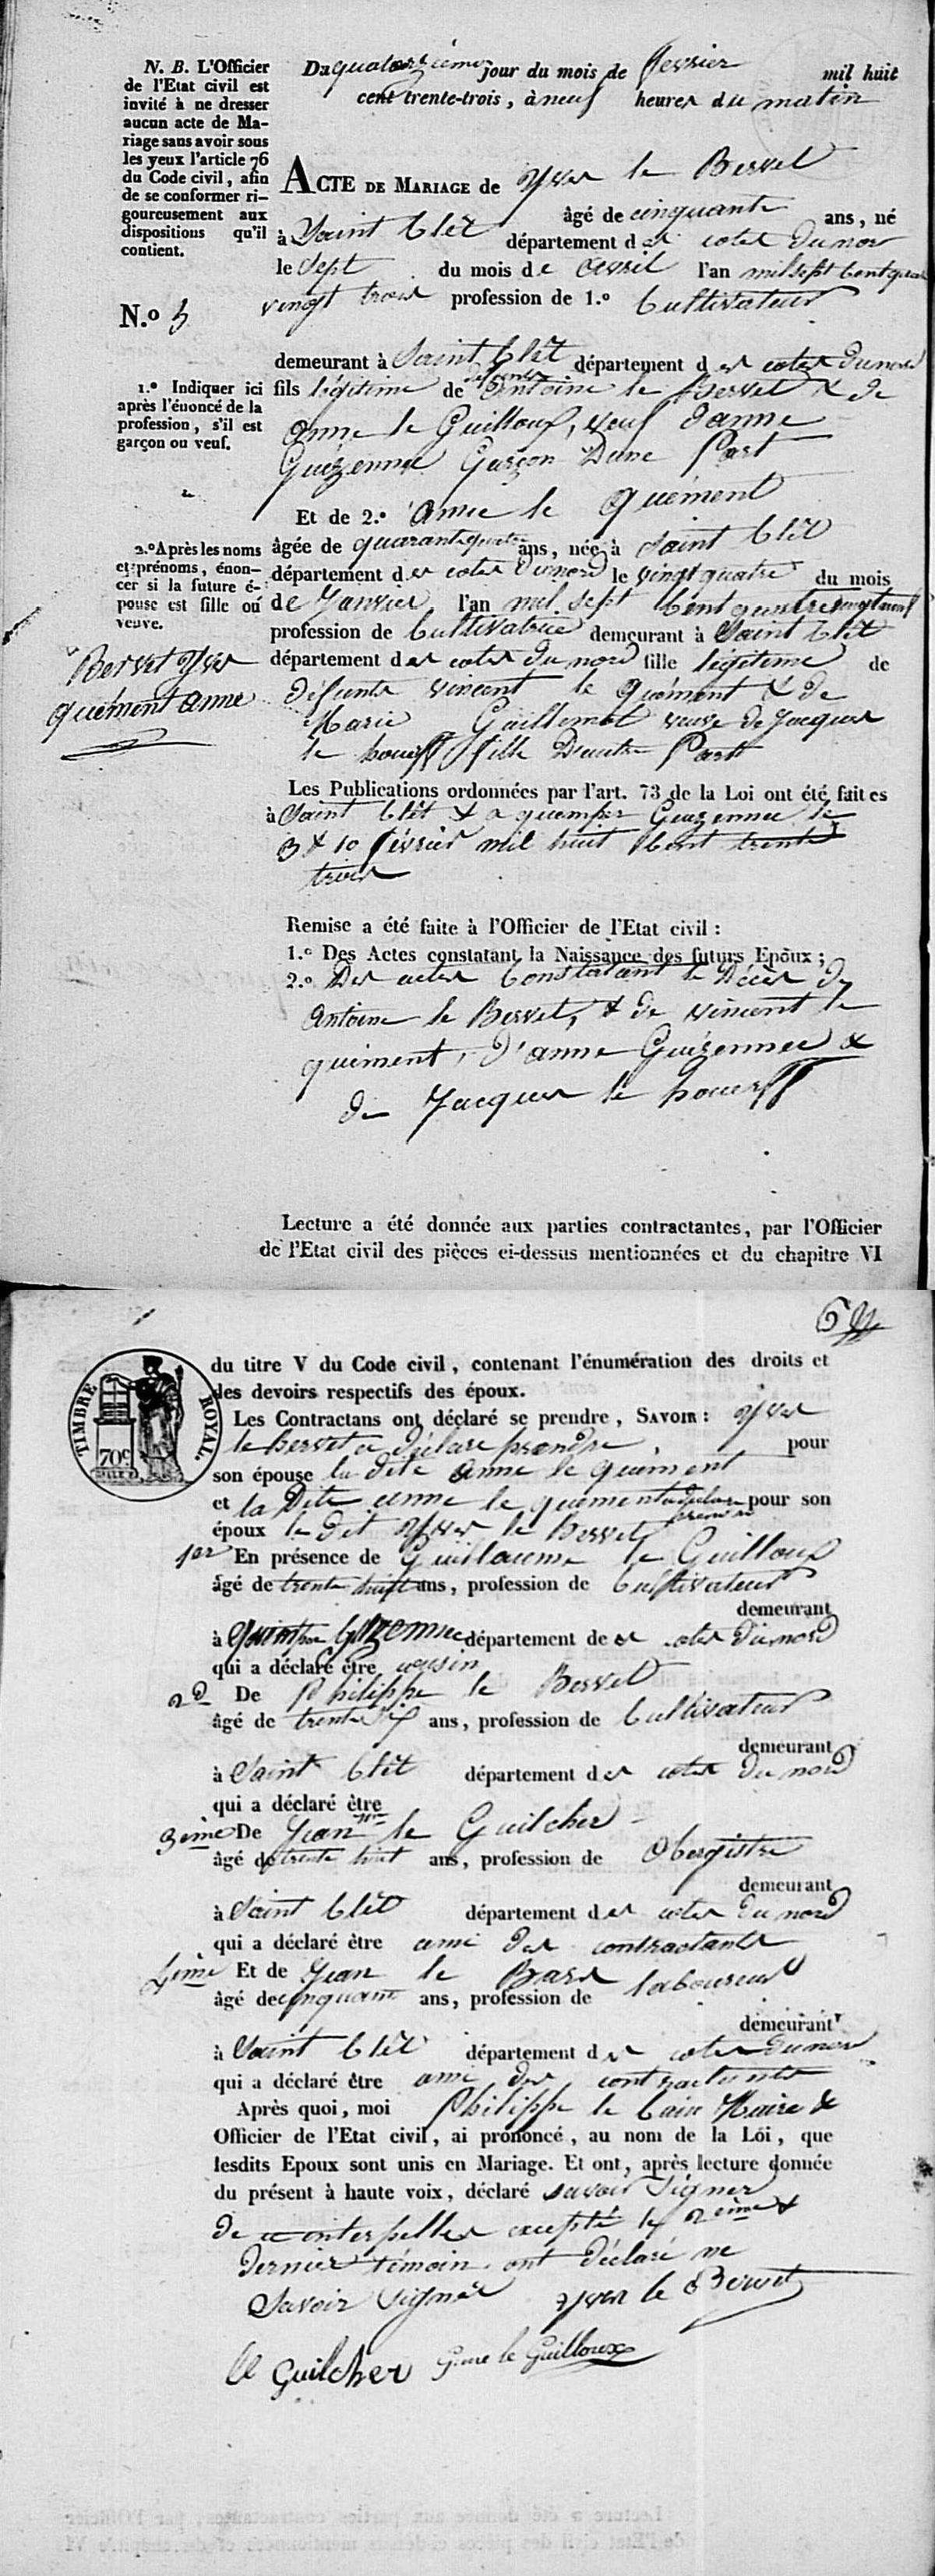 N. B. L'Officier
de l'Etat civil est
invité à ne dresser
aucun acte de Ma-
riage sans avoir sous
les yeux l'article 76
du Code civil, afin
de se conformer ri-
goureusement aux
dispositions qu'il
contient.
Du quatorzième jour du mois de fevrier mil huit
cent trente-trois, à neuf heures du matin
ACTE DE MARIAGE de Yves le Berset
âgé de cinquante ans, né
à Saint Clét département des cotes du nor
le Sept du mois de avril l'an mil sept Cent quat
vingt trois profession de 1.º Cultivateur
N.º 5
demeurant à Saint Clét département des cotes du nord
1.º Indiquer ici
après l'énoncé de la
profession, s'il est
garçon ou veuf.
fils légitime de défunts Antoine le Berset & de
anne le Guillouf, veuf d'anne
Guézennec Garçon Dune Part
Et de 2.º anne le quément
2.º Après les noms
et prénoms, énon-
cer si la future é-
pouse est fille ou
veuve.
âgée de quarantequatre ans, née à Saint Clét
département des cotes du nord le vingt quatre du mois
de Janvier l'an mil sept Cent quatrevingtneuf
profession de Cultivatrice demeurant à Saint Clét
département des cotes du nord fille légitime de
Berset Yves
quément anne
défunts vincent le quément & de
Marie Guillemot veuve de Jacques
le houerff fille Dautre Part
Les Publications ordonnées par l'art. 73 de la Loi ont été faites
à Saint Clét & a quemper Guezennec le
3 & 10 février mil huit Cent trente
trois
Remise a été faite à l'Officier de l'Etat civil :
1.º Des Actes constatant la Naissance des futurs Epoux ;
2.º Des actes Constatant le Décès de
antoine le Berset, & de vincent le
quément, d'anne Guézennec &
de Jacques le houerff
Lecture a été donnée aux parties contractantes, par l'Officier
de l'Etat civil des pièces ci-dessus mentionnées et du chapitre VI
6
TIMBRE ROYAL.
70c
du titre V du Code civil, contenant l'énumération des droits et
des devoirs respectifs des époux.
Les Contractans ont déclaré se prendre, SAVOIR : Yves
le berset a déclare prendre pour
son épouse la dite anne le quément
et la Dite anne le quément a declare prendre pour son
époux le dit Yves le Berset
1er En présence de Guillaume le Guilloux
âgé de trente huit ans, profession de Cultivateur
demeurant
à quimper Guezennec département des cotes du nord
qui a déclaré être cousin
2d De Philippe le Berset
âgé de trente Six ans, profession de Cultivateur
demeurant
à Saint Clét département des cotes du nord
qui a déclaré être
3ème De Jean le Guilcher
âgé de trente huit ans, profession de Obergistre
demeurant
à Saint Clét département des cotes du nord
qui a déclaré être ami des contractants
4ème Et de Jean le Bars
âgé de cinquante ans, profession de laboureur
demeurant
à Saint Clét département des cotes du nord
qui a déclaré être ami des contractants
Après quoi, moi Philippe le Cain Maire &
Officier de l'Etat civil, ai prononcé, au nom de la Loi, que
lesdits Epoux sont unis en Mariage. Et ont, après lecture donnée
du présent à haute voix, déclaré savoir signer
de ce interpellés excepté le 2ème &
Dernier témoin ont déclaré ne
Savoir Signer yves le Berset
le Guilcher Gme le Guilloux